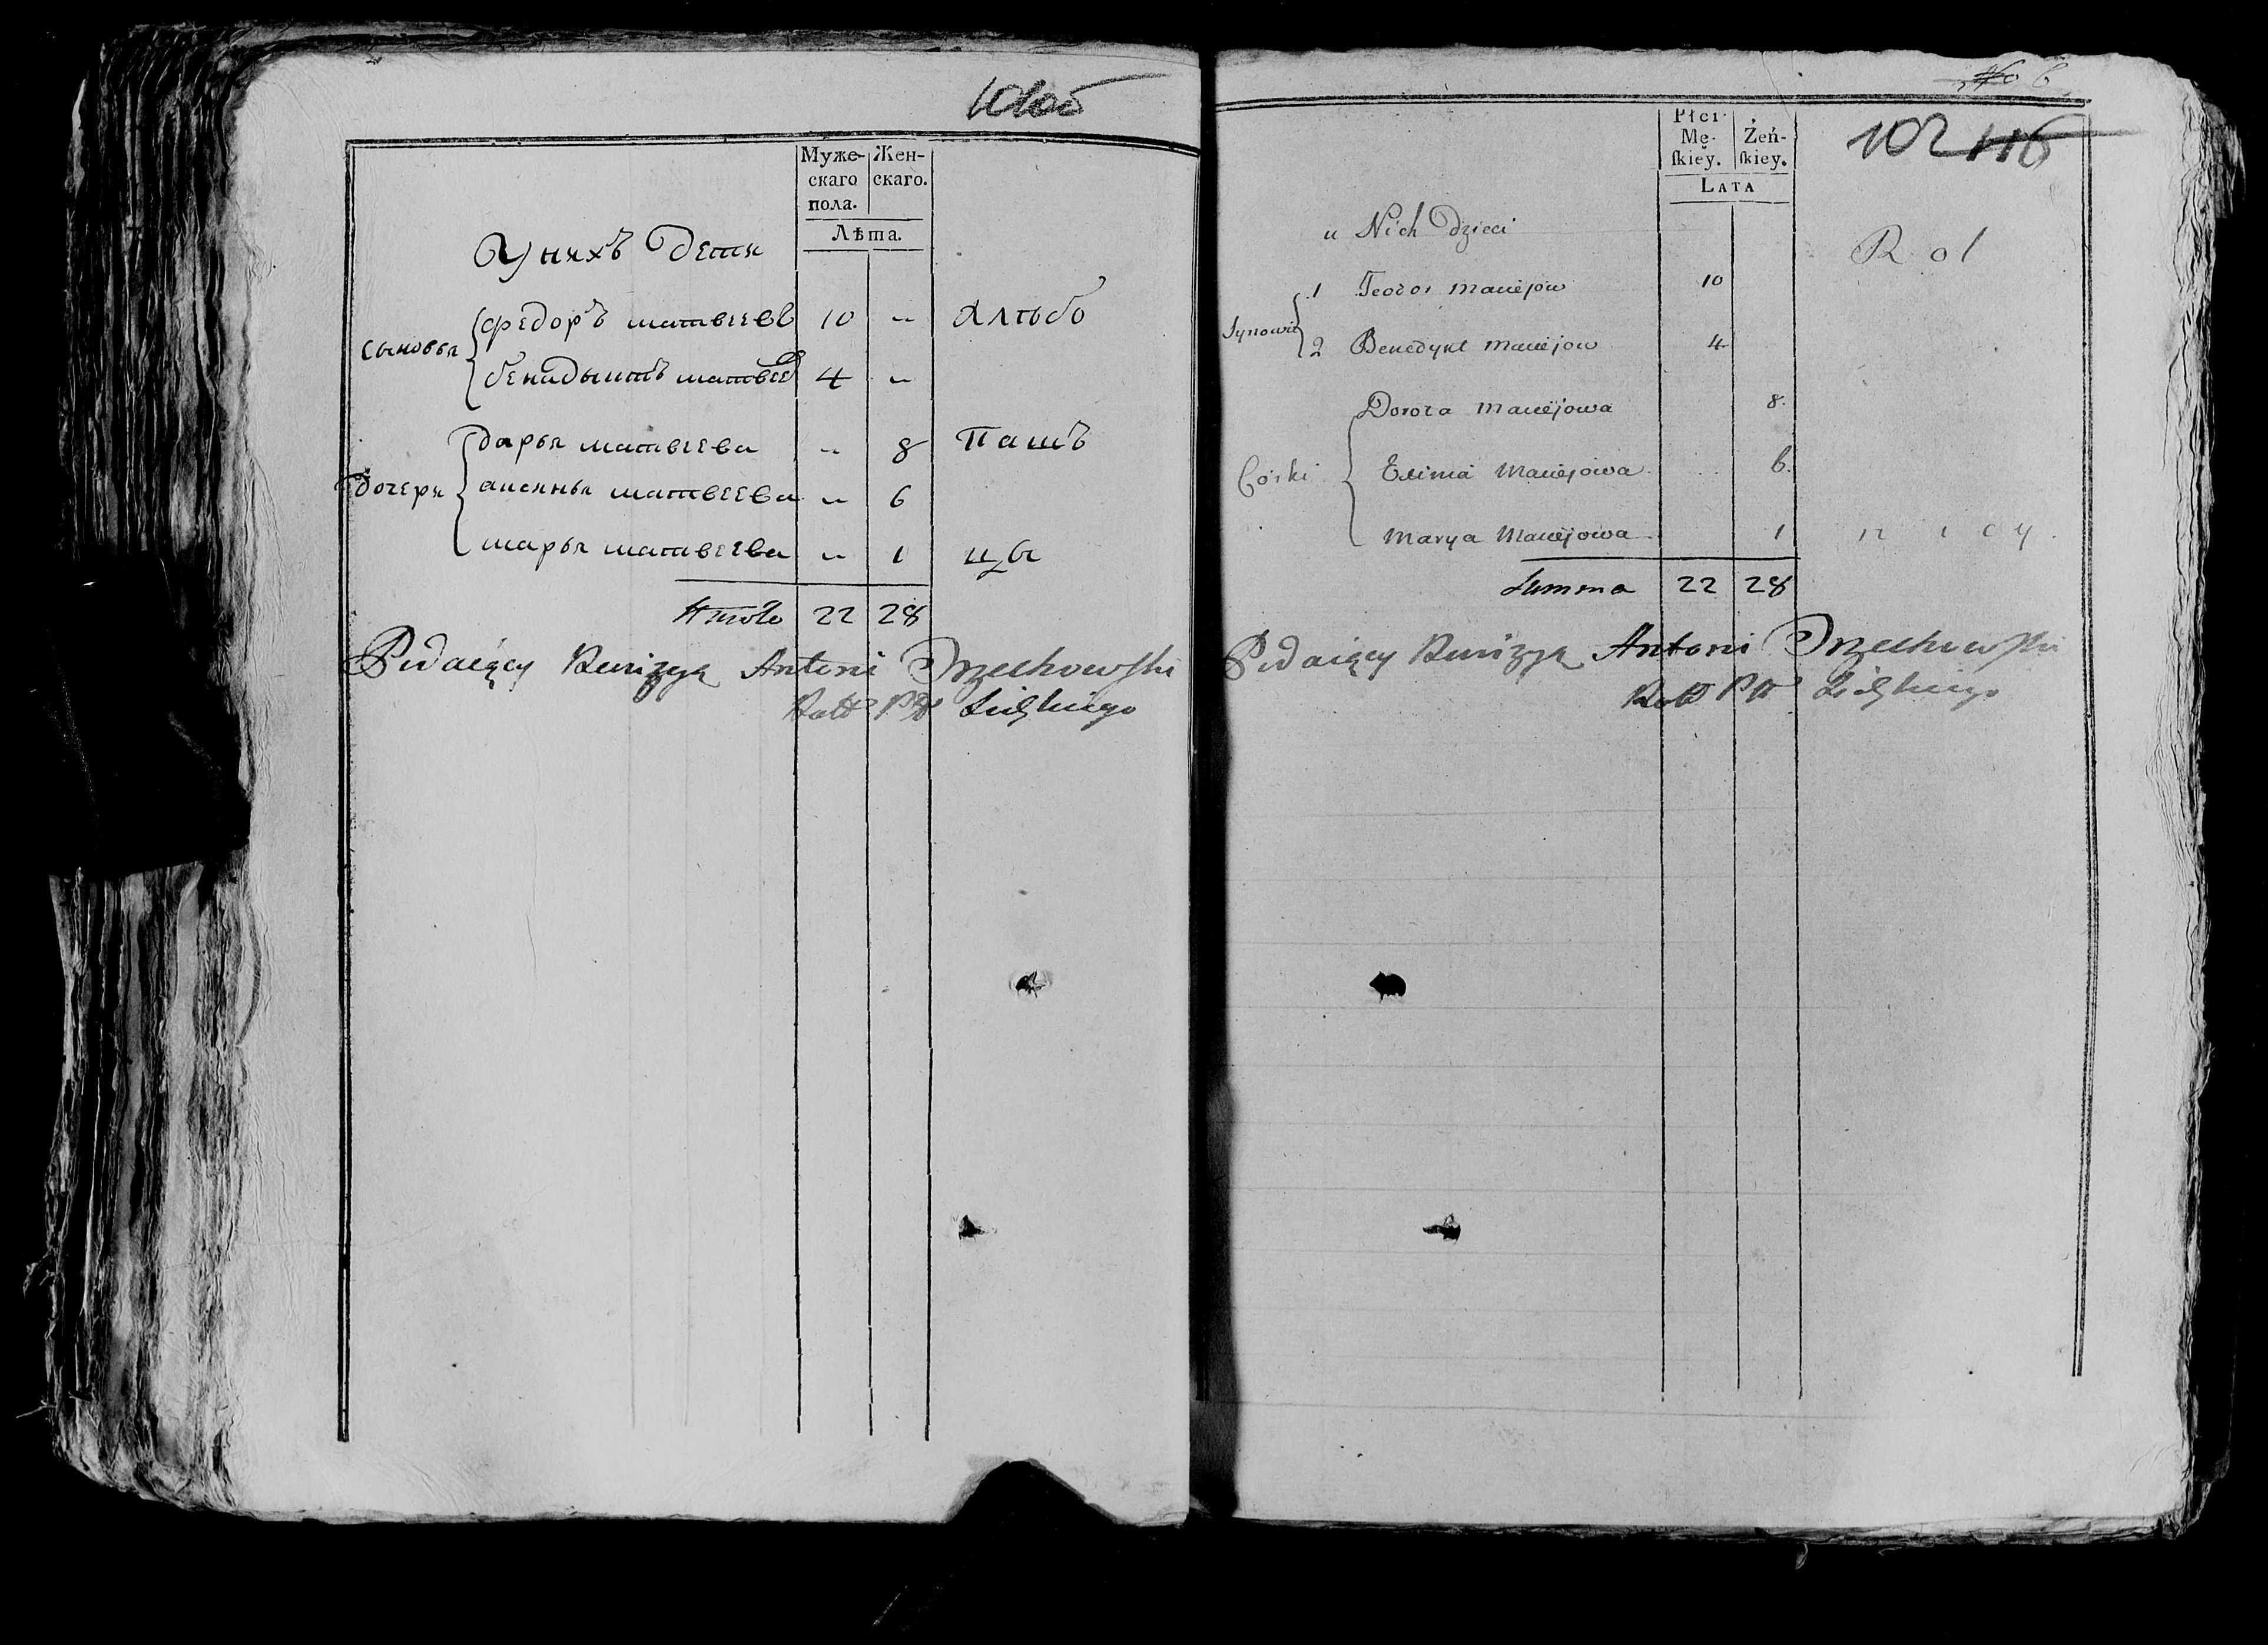 Муже-
скаго
пола.
Жен-
скаго.
Лѣта.
У нихъ дети
Сыновья
федоръ матвеевъ 10 "
Хлѣбо
бенидыктъ матвеев 4 "
Дочери
дарья матвеева " 8
пашъ
аксинья матвеева " 6
марья матвеева " 1
цы
Итого 22 28
Podaiący Rewizyą Antoni Orzechowski
Lidzkiego
102 116
Płci
Mę-
ſkiey.
Żeń-
ſkiey.
LATA
u Nich Dzieci
R o l
Synowie
1 Teodor Maciejow 10
2 Benedykt Maciejow 4
Corki
Dorota Maciejowa 8.
Maciejowa 6.
Marya Maciejowa 1
n i c y
Summa 22 28
Podaiący Rewizyą Antoni Orzechowski
Lidzkiego